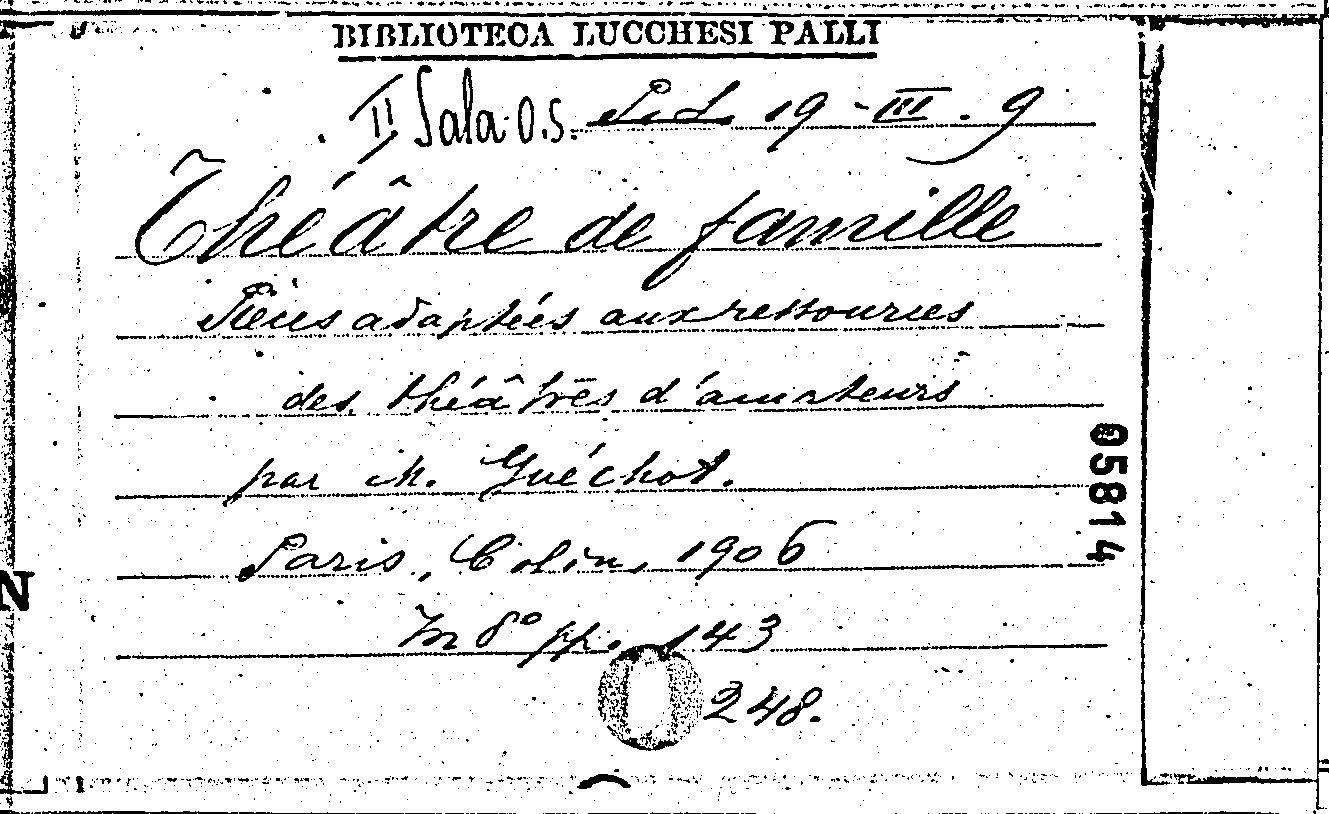 BIBLIOTECA LUCCHESI PALLI
II Sala O.S. 19-III.9
Théâtre de famille
Pièces adaptées aux ressources
des théâtres d'amateurs
par M. Guéchot.
Paris, Colin, 1906
In 8° pp. 143
248.
05814
N